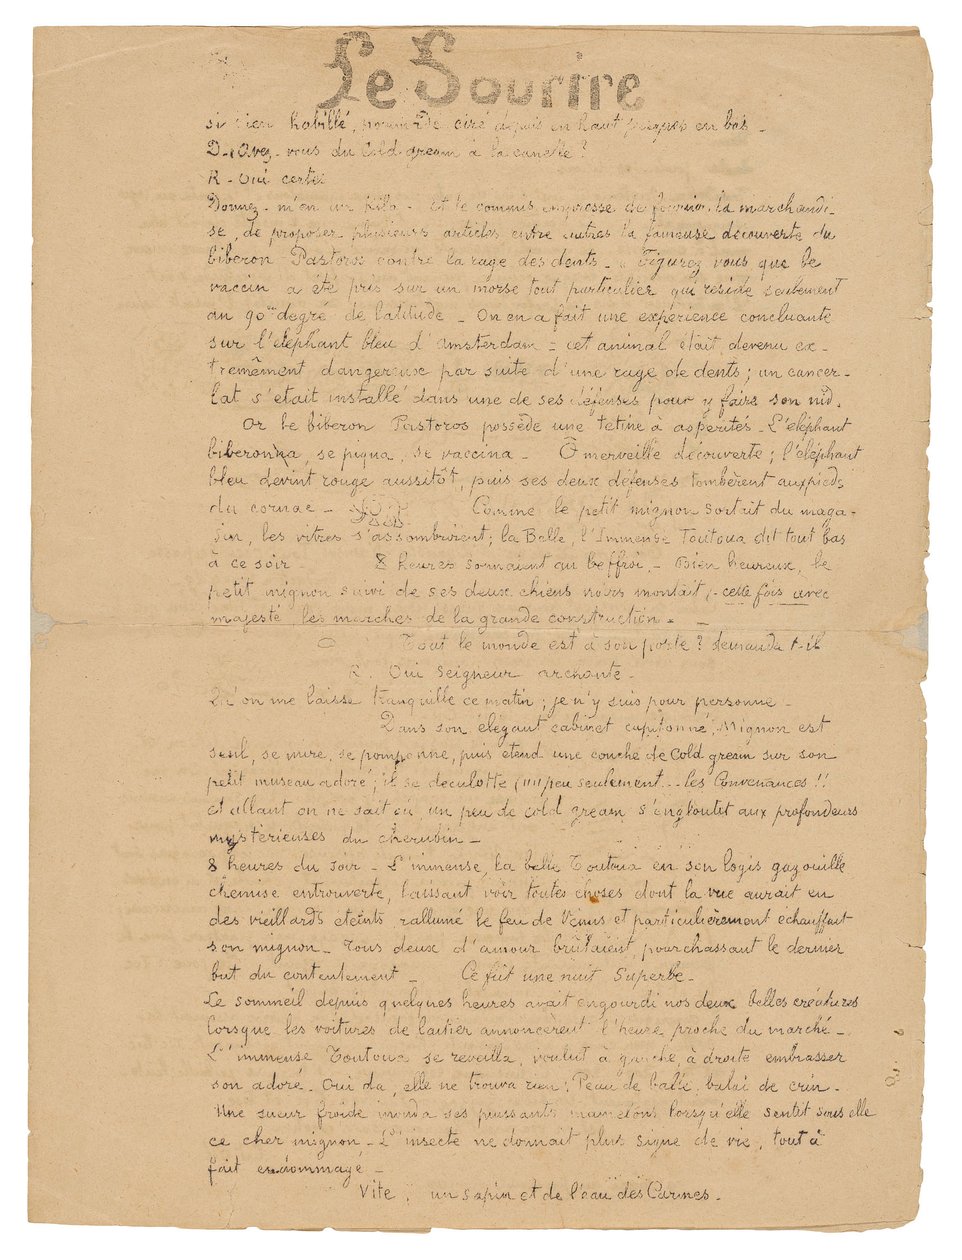 Le Sourire
si bien habillé, pommadé ciré depuis en haut jusques en bas -
D - Avez-vous du Cold gream à la canelle ?
R - Oui certes
Donnez-m'en un kilo - Et le commis empressé de fournir la marchandi-
se, de proposer plusieurs articles entre autres la fameuse découverte du
biberon Pastoros contre la rage des dents - Figurez vous que le
vaccin a été pris sur un morse tout particulier qui reside seulement
au 90me degré de latitude - On en a fait une expérience concluante
sur l'elephant bleu d'Amsterdam = cet animal était devenu ex-
trêmement dangereux par suite d'une rage de dents; un cancer-
lat s'était installé dans une de ses défenses pour y faire son nid.
Or le biberon Pastoros possède une tetine à asperités - L'eléphant
biberonna, se piqua, se vaccina - Ô merveille découverte; l'éléphant
bleu devint rouge aussitôt, puis ses deux défenses tombèrent aux pieds
du cornac - Comme le petit mignon sortait du maga-
sin, les vitres s'assombrirent; la Belle, l'Immense Toutoua dit tout bas
à ce soir 8 heures sonnaient au beffroi - Bien heureux, le
petit mignon suivi de ses deux chiens noirs montait, - cette fois avec
majesté, les marches de la grande construction -
D Tout le monde est à son poste ? demanda t-il
R. Oui Seigneur archonte -
Qu'on me laisse tranquille ce matin; je n'y suis pour personne -
Dans son élégant cabinet capitonné, Mignon est
seul, se mire, se pomponne, puis etend une couche de Cold gream sur son
petit museau adoré; il se déculotte, un peu seulement... les Convenances !!
et allant on ne sait où, un peu de cold gream s'engloutit aux profondeurs
mystèrieuses du cherubin -
8 heures du soir - L'immense, la belle Toutoua en son logis gazouille
chemise entrouverte, laissant voir toutes choses dont la vue aurait en
des vieillards eteints rallumé le feu de Vénus et particulièrement échauffait
son mignon - Tous deux d'amour brûlaient, pourchassant le dernier
but du contentement - Ce fût une nuit Superbe -
Le sommeil depuis quelques heures avait engourdi nos deux belles créatures
lorsque les voitures de laitier annoncèrent l'heure proche du marché -
L'immense Toutoua se reveilla, voulut à gauche à droite embrasser
son adoré - Oui da, elle ne trouva rien: Peau de balle, balai de crin -
Une sueur froide inonda ses puissants mamelons lorsqu'elle sentit sous elle
ce cher mignon - L'insecte ne donnait plus signe de vie, tout à
fait endommagé -
Vite, un sapin et de l'eau des Carmes -